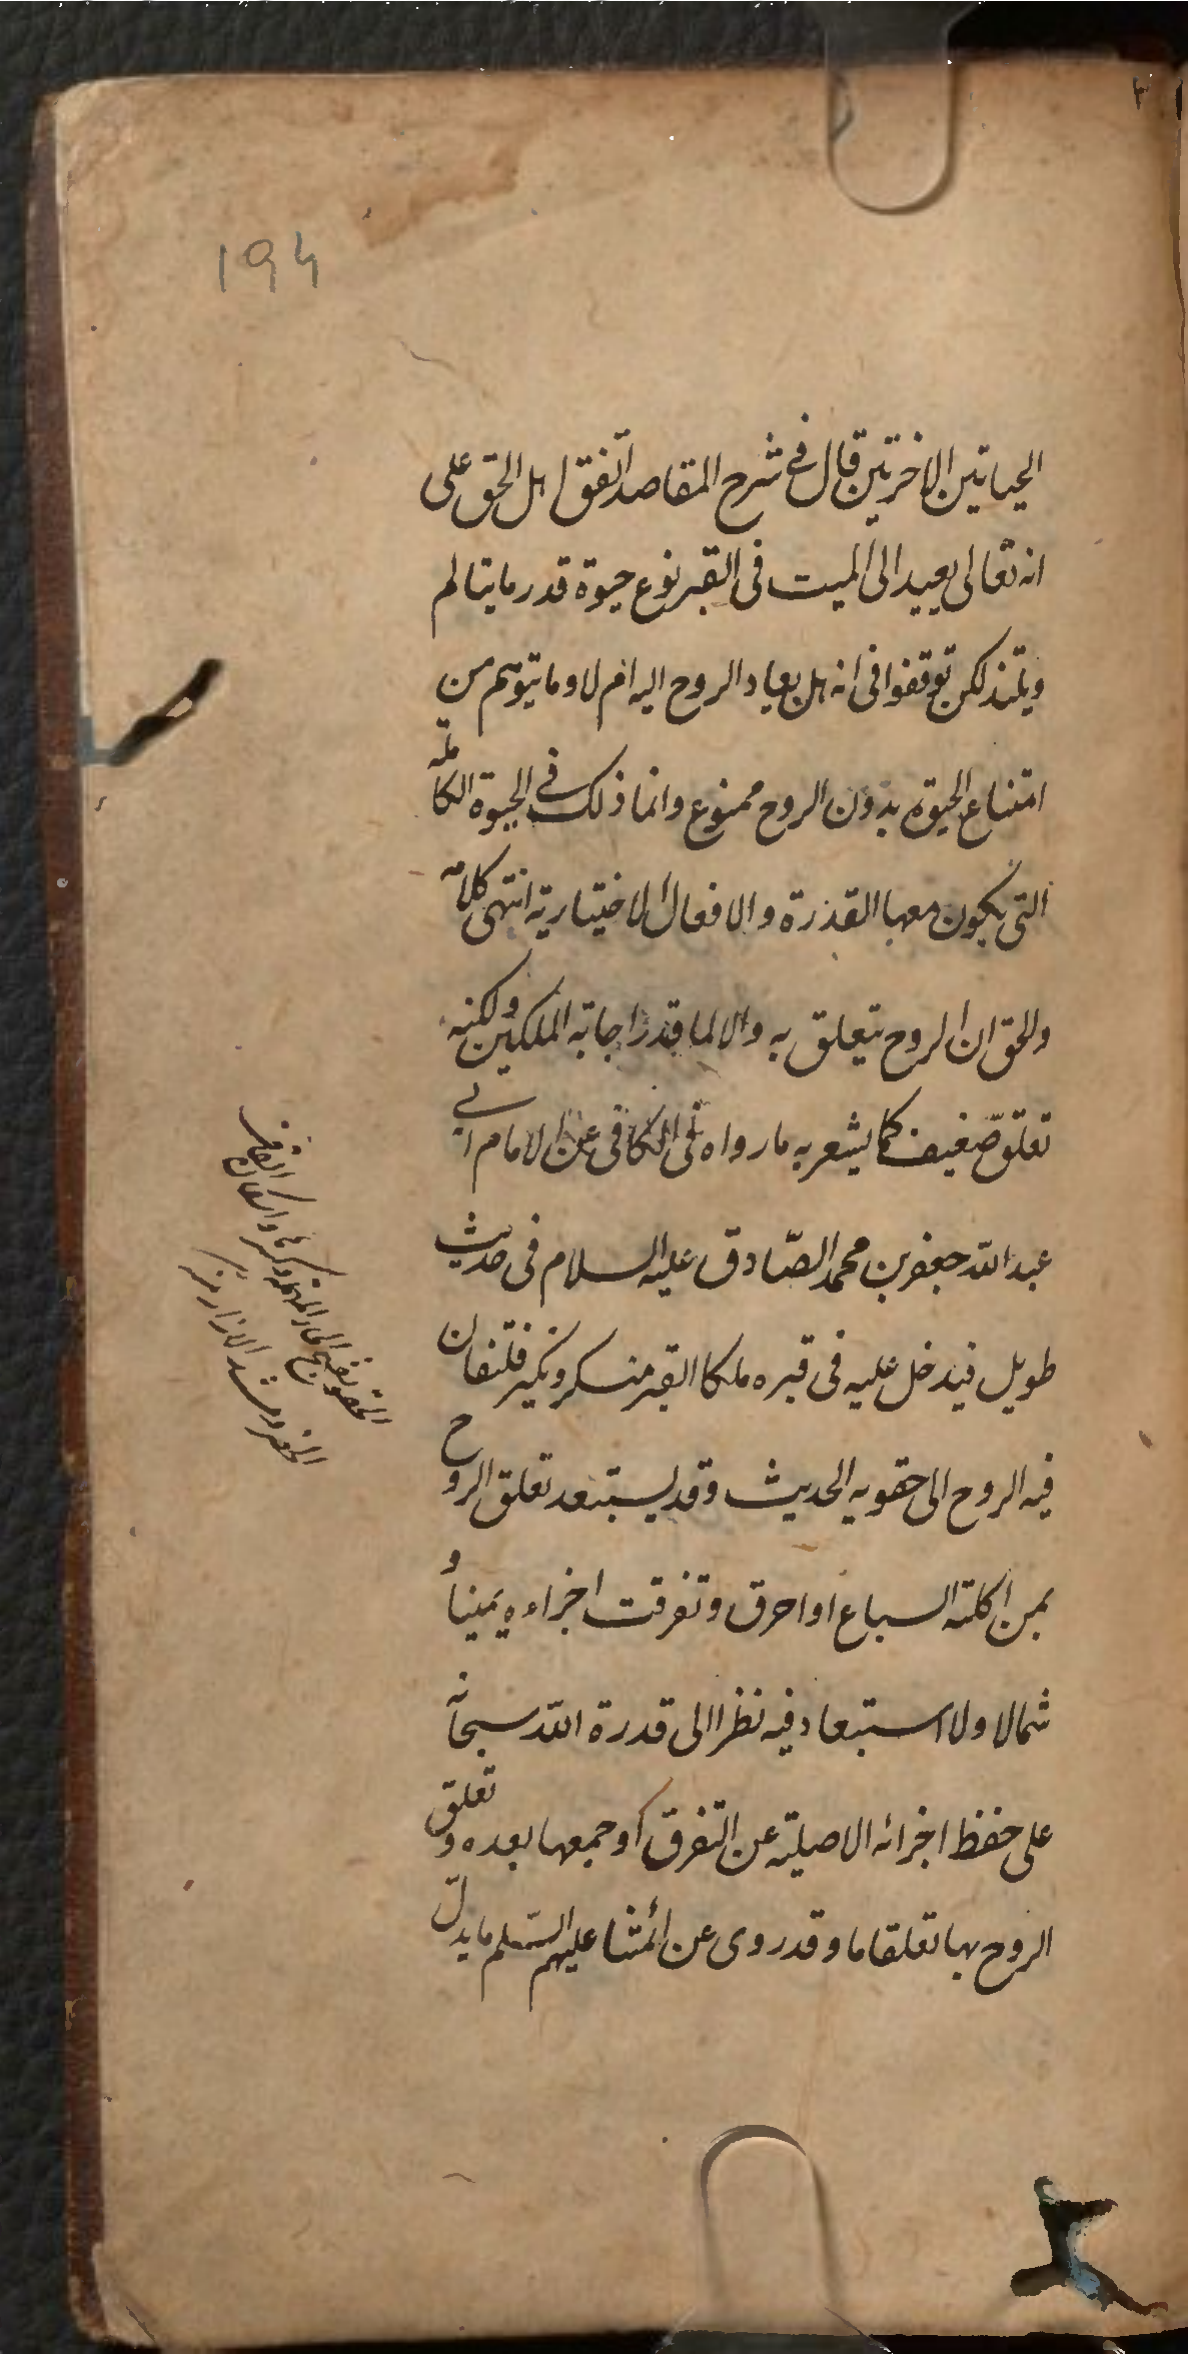 ۱۹۴
الحياتين الاخرتين قال فى شرح المقاصد اتفق اهل الحق على
انه تعالى يعيد الى الميت فى القبر نوع حيوة قدر ما يتالم
ويلتذ لكن توقفوا فى انه هل يعاد الروح اليه ام لا وما يتوهم من
امتناع الحيوة بدون الروح ممنوع وانما ذلك فى الحيوة الكاملة
التى يكون معها القدرة والافعال الاختيارية انتهى كلامه
والحق ان الروح يتعلق به والا لما قدر اجابة الملكين ولكنه
تعلق ضعيف كما يشعر به ما رواه فى الكافى عن الامام ابى
عبد الله جعفر بن محمد الصّادق عليه السلام فى حديث
طويل فيدخل عليه فى قبره ملكا القبر منكر ونكير فتلقيان
فيه الروح الى حقويه الحديث وقد يستبعد تعلق الروح
بمن اكلته السباع او احرق وتفرقت اجزاءه يمينا و
شمالا ولا استبعاد فيه نظرا الى قدرة الله سبحانه
على حفظ اجزائه الاصلية عن التفرق او جمعها بعده و تعلق
الروح بها تعلقا ما وقد روى عن ائمتنا عليهم السّلم ما يدلّ
الحقو بفتح الحاء المهملة وكسرها واسكان القاف
الخصر ومشد الازار